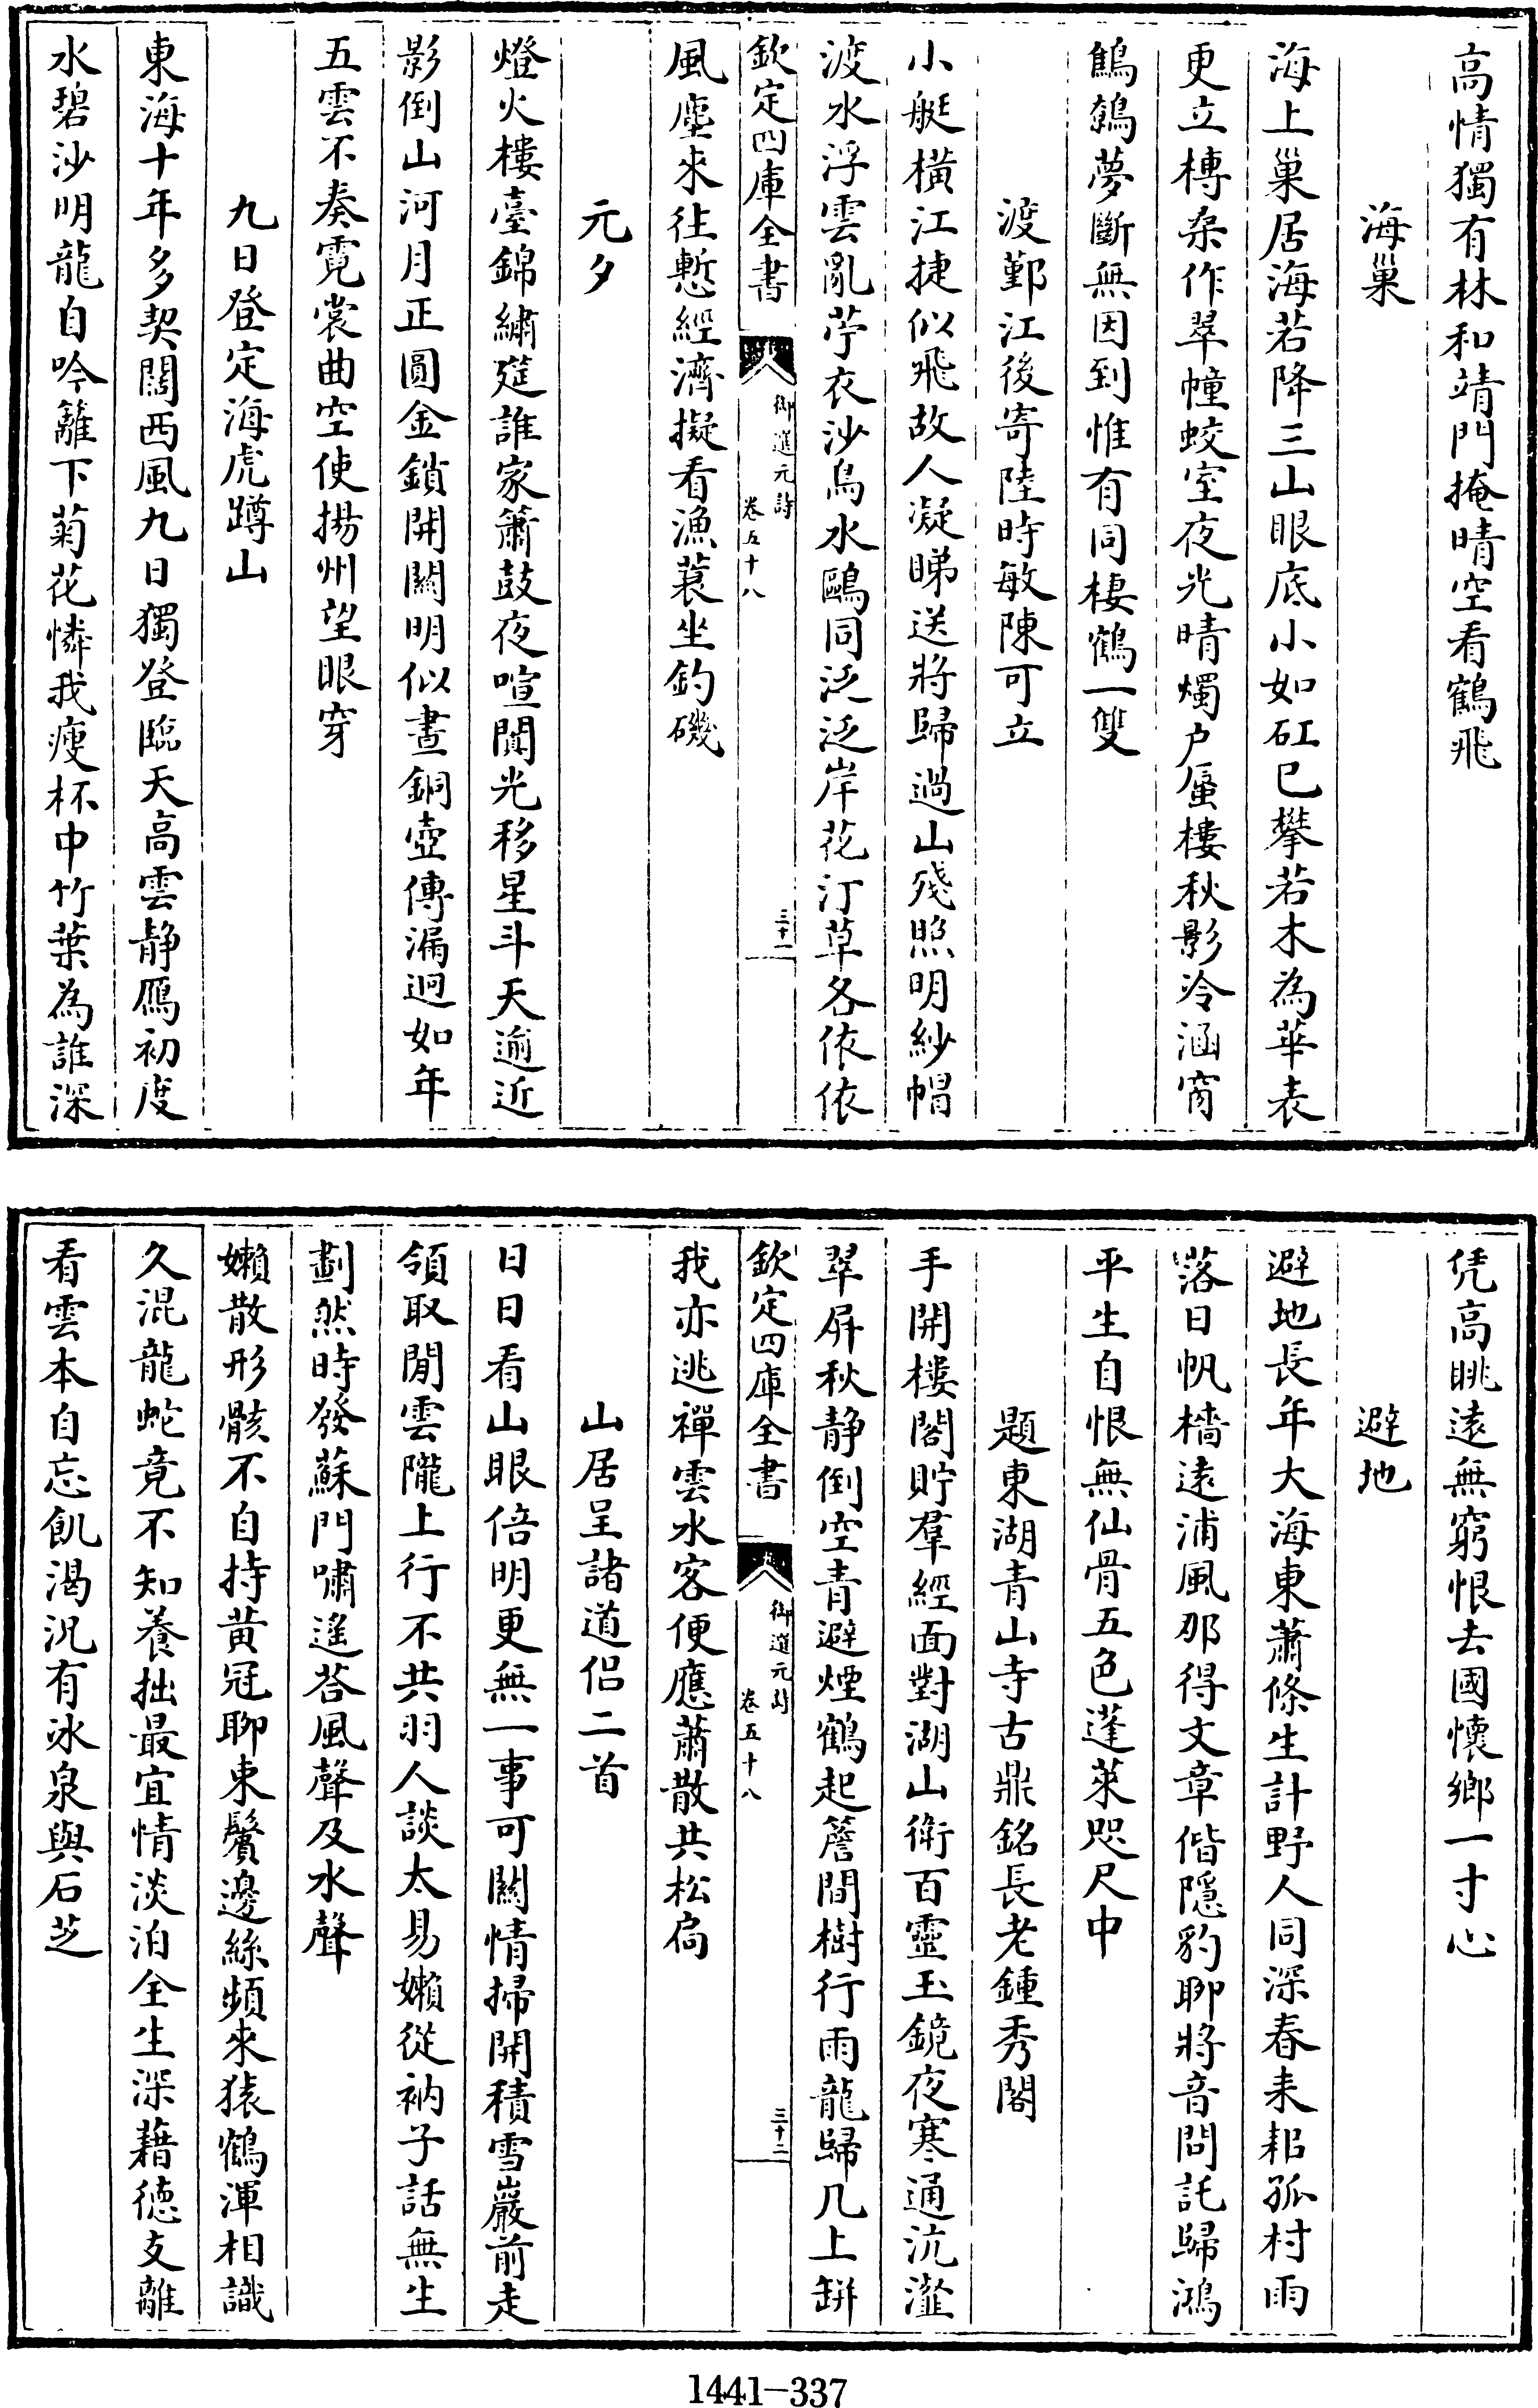 高情獨有林和靖門掩晴空看鶴飛
海巢
海上巢居海若降三山眼底小如矼已攀若木為華表
更立榑桑作翠幢蛟室夜光晴燭户蜃樓秋影冷涵窗
鷦鷯夢斷無因到惟有同棲鶴一雙
渡鄞江後寄陸時敏陳可立
小艇橫江捷似飛故人凝睇送將歸過山殘照明紗帽
渡水浮雲亂苧衣沙鳥水鷗同泛泛岸花汀草各依依
欽定四庫全書
御選元詩
卷五十八
三十一
風塵來往慙經濟擬看漁蓑坐釣磯
元夕
燈火樓臺錦繡筵誰家簫鼓夜喧闐光移星斗天逾近
影倒山河月正圓金鎖開關明似晝銅壺傳漏迥如年
五雲不奏霓裳曲空使揚州望眼穿
九日登定海虎蹲山
東海十年多契闊西風九日獨登臨天高雲静鴈初度
水碧沙明龍自吟籬下菊花憐我瘦杯中竹葉為誰深
凭高眺遠無窮恨去國懷鄉一寸心
避地
避地長年大海東蕭條生計野人同深春耒耜孤村雨
落日帆檣遠浦風那得文章偕隱豹聊將音問託歸鴻
平生自恨無仙骨五色蓬萊咫尺中
題東湖青山寺古鼎銘長老鍾秀閣
手開樓閣貯羣經面對湖山衛百靈玉鏡夜寒通沆瀣
翠屏秋静倒空青避煙鶴起簷間樹行雨龍歸几上缾
欽定四庫全書
御選元詩
卷五十八
三十二
我亦逃禪雲水客便應蕭散共松扃
山居呈諸道侶二首
日日看山眼倍明更無一事可關情掃開積雪巖前走
領取閒雲隴上行不共羽人談太易嬾從衲子話無生
劃然時發蘇門嘯遙荅風聲及水聲
嬾散形骸不自持黃冠聊束鬢邊絲頻來猿鶴渾相識
久混龍蛇竟不知養拙最宜情淡泊全生深藉德支離
看雲本自忘飢渴況有冰泉與石芝
1441-337